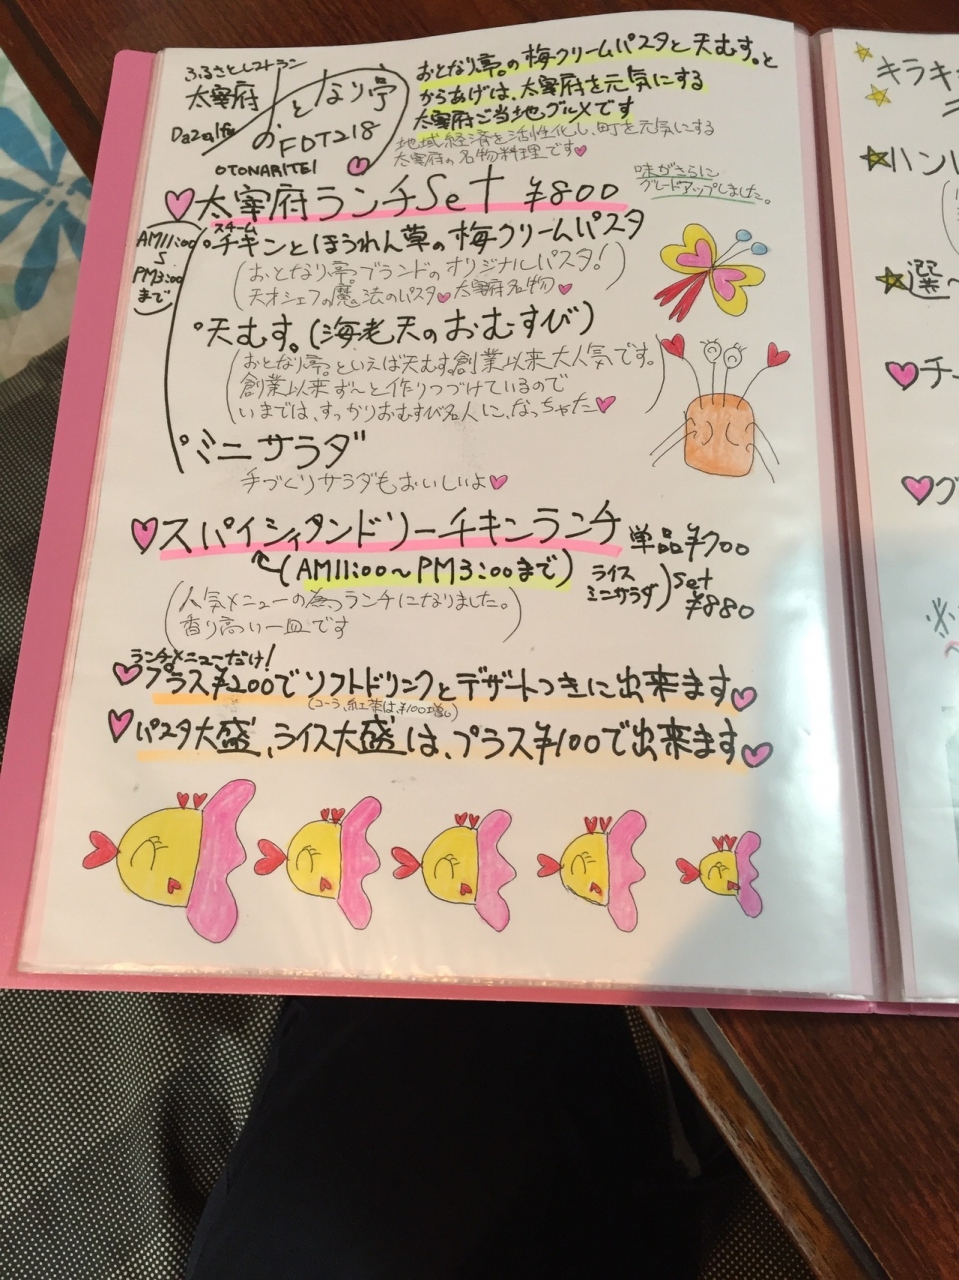 ふるさとレストラン
太宰府
Dazaifu
おとなり亭
FDT218
OTONARITEI
おとなり亭。の梅クリームパスタと天むす。と
からあげは、太宰府を元気にする
太宰府ご当地グルメです
地域経済を活性化し、町を元気にする
太宰府の名物料理です♥
味がさらに
グレードアップしました。
太宰府ランチSet ¥800
AM11:00
〜
PM3:00
まで
スチーム
チキンとほうれん草の梅クリームパスタ
(おとなり亭。ブランドのオリジナルパスタ!
天才シェフの魔法のパスタ♥太宰府名物♥)
天むす。(海老天のおむすび)
(おとなり亭。といえば天むす。創業以来大人気です。
創業以来ず〜と作りつづけているので
いまでは、すっかりおむすび名人に、なっちゃた♥)
ミニサラダ
手づくりサラダもおいしいよ♥
スパイシィタンドリーチキンランチ 単品¥700
(AM11:00〜PM3:00まで)
ライス
ミニサラダ)Set
¥880
人気メニューの
ランチになりました。
香り高い一皿です
ランチメニューだけ!
♥プラス¥200でソフトドリンクとデザートつきに出来ます♥
(コーラ、紅茶は、¥100増し)
♥パスタ大盛、ライス大盛は、プラス¥100で出来ます♥
キラキ
★ハン
★選〜
♥チー
♥グ
※